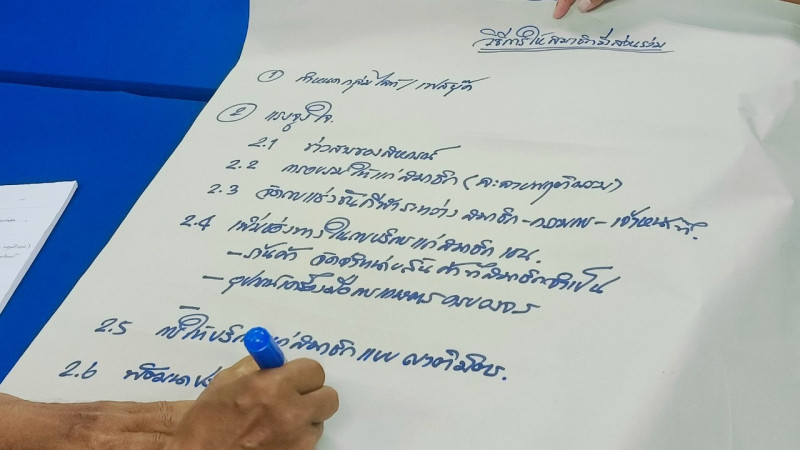 วิธีการให้สมาชิกมีส่วนร่วม
① กำหนดกลุ่มไลน์/เฟสบุ๊ค
② แรงจูงใจ
2.1 ข่าวสารของสหกรณ์
2.2 การอบรมให้แก่สมาชิก (ละลายพฤติกรรม)
2.3 จัดการแข่งขันกีฬาระหว่าง สมาชิก - กรรมการ - เจ้าหน้าที่.
2.4 เพิ่มช่องทางในการบริการแก่สมาชิก เช่น.
- ร้านค้า จัดจำหน่ายสินค้าที่สมาชิกจำเป็น
- อุปกรณ์เครื่องมือการเกษตร
2.5 การให้บริการแก่สมาชิก แบบ ญาติมิตร.
2.6